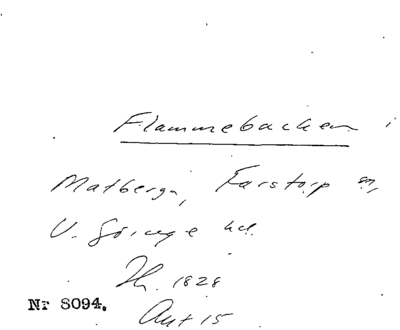 Flammebacken i
Matberga, Farstorp sn,
V. Göinge hd.
1828
Nr 8094.
Akt 15